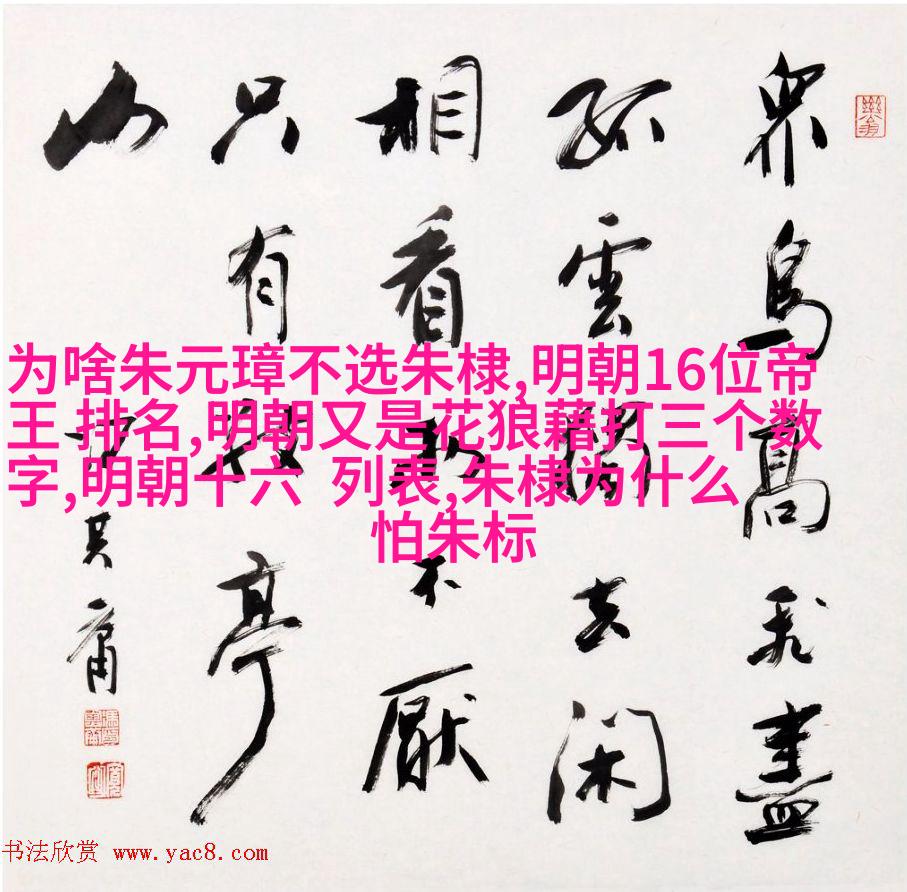 眾鳥高飛盡
孤雲獨去閑
相看兩不厭
只有敬亭
山
其庸
为啥朱元璋不选朱棣,明朝16位帝
王 排名,明朝又是花狼藉打三个数
字,明朝十六 列表,朱棣为什么
怕朱标
书法欣赏 www.yac8.com